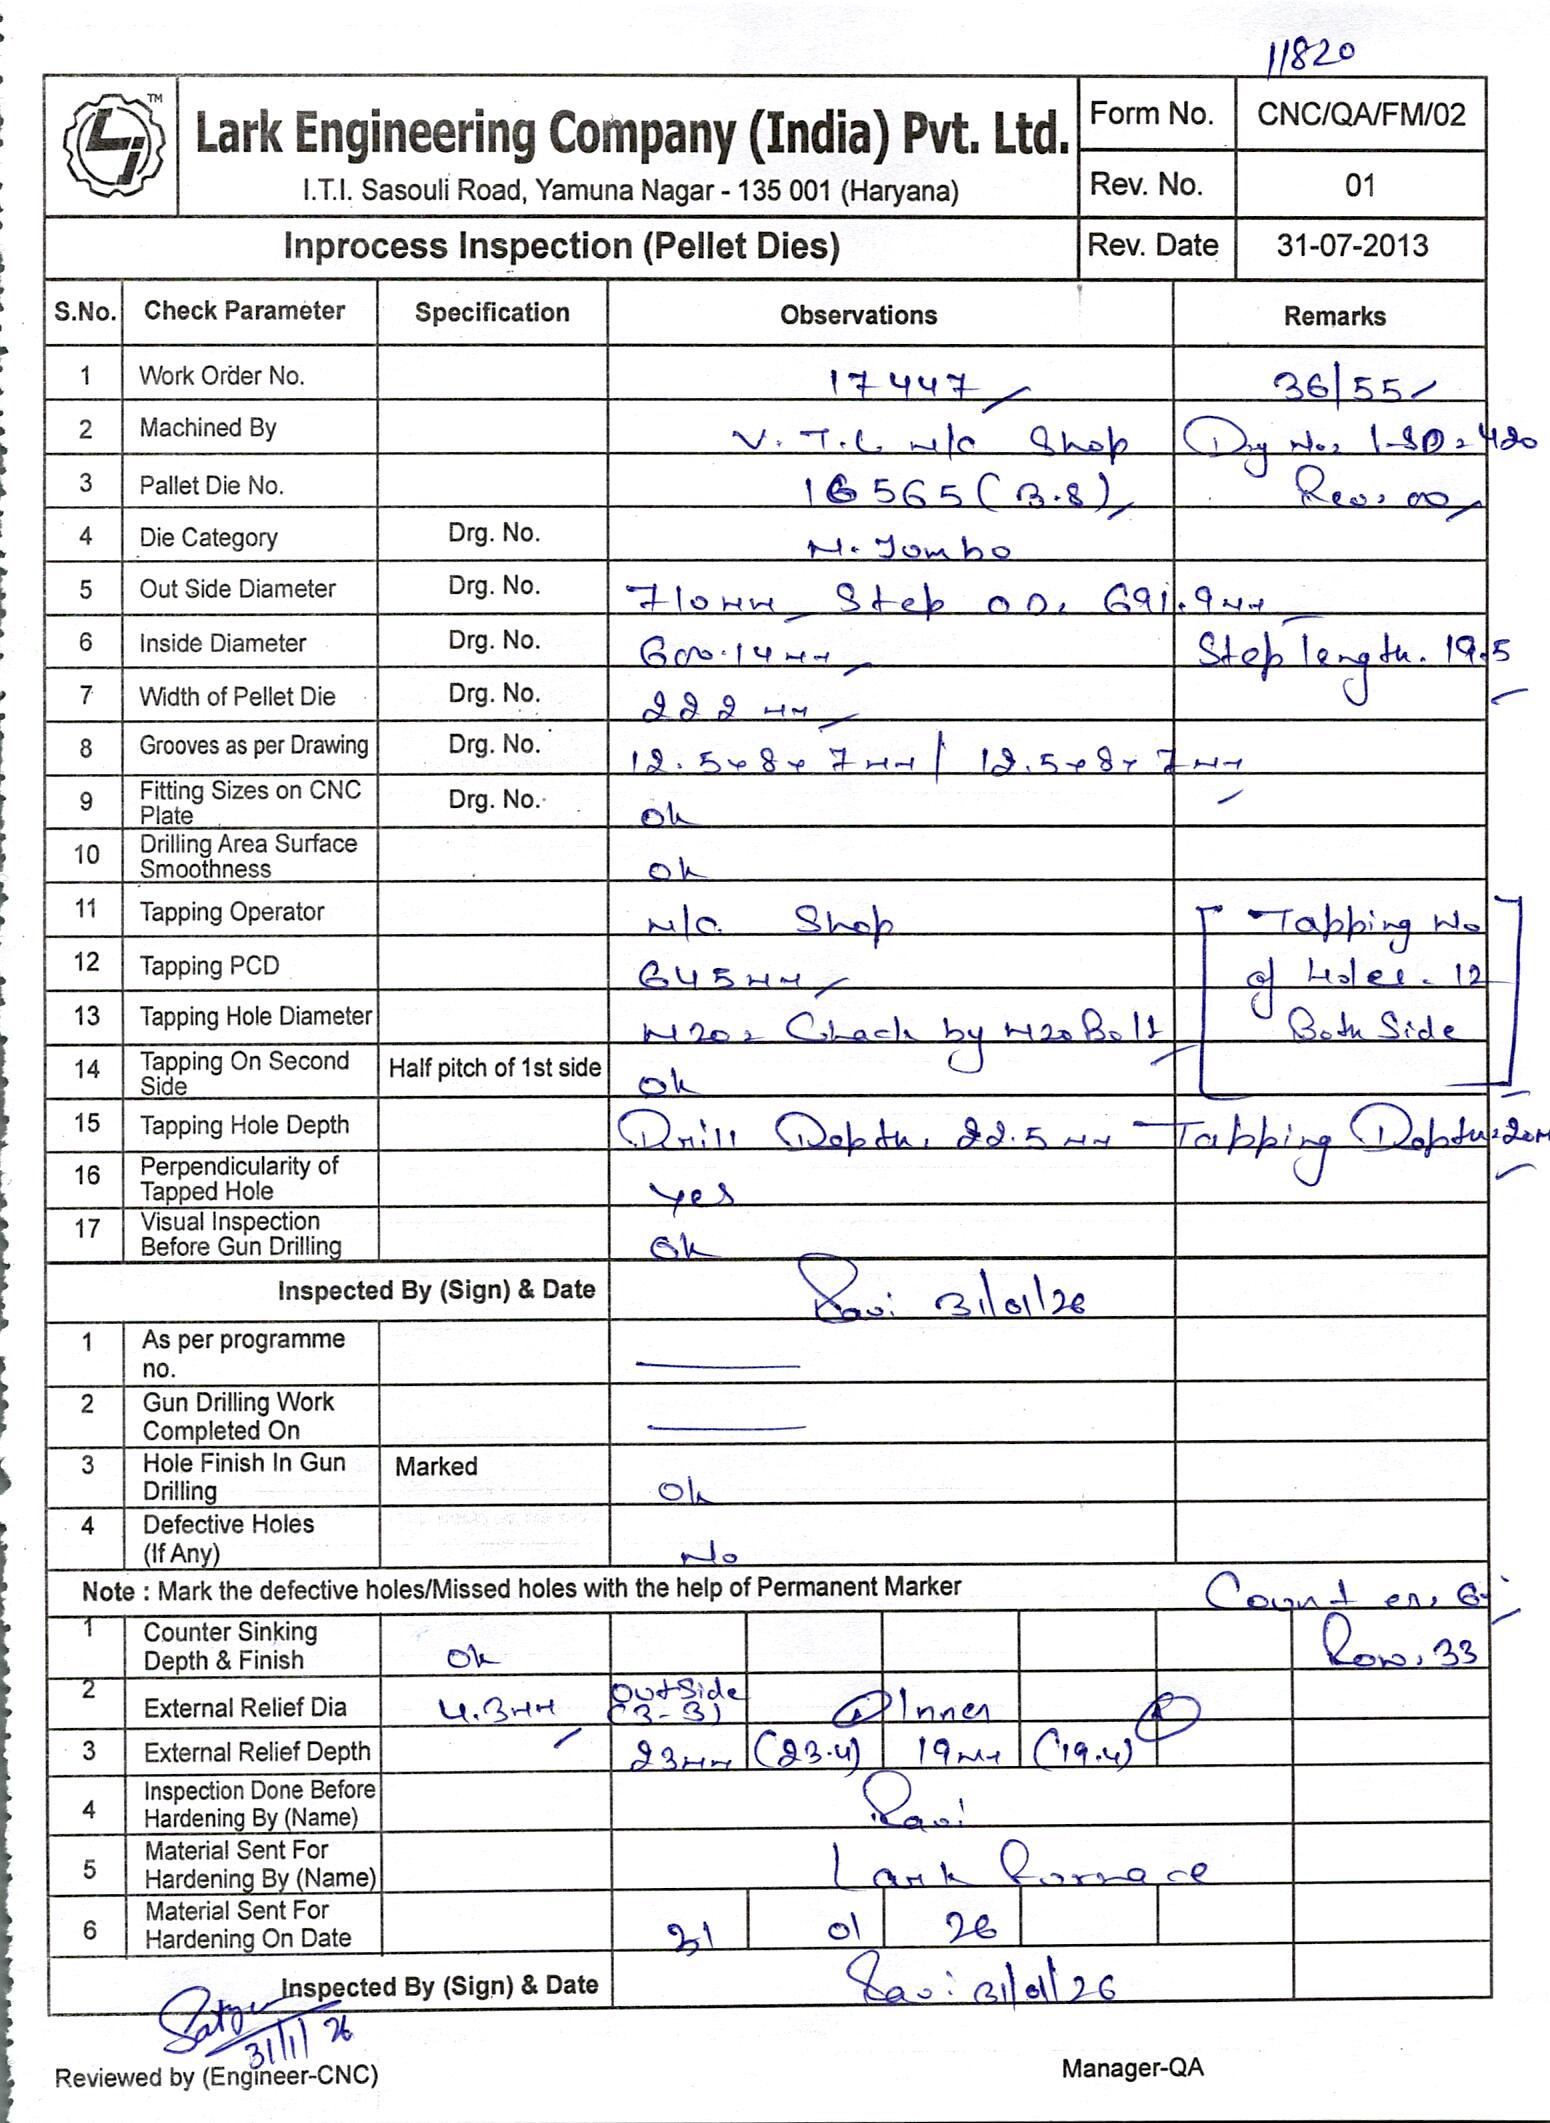 11820
TM
Lark Engineering Company (India) Pvt. Ltd.
I.T.I. Sasouli Road, Yamuna Nagar - 135 001 (Haryana)
Form No. CNC/QA/FM/02
Rev. No. 01
Inprocess Inspection (Pellet Dies) Rev. Date 31-07-2013
S.No. Check Parameter Specification Observations Remarks
1 Work Order No. 17447 36/55
2 Machined By V.T.L M/C Shop Drg No.
3 Pallet Die No. 16565 (3.8) Rev. 00
4 Die Category Drg. No. M. Jombo
5 Out Side Diameter Drg. No. 710mm Step OD. 691.9mm
6 Inside Diameter Drg. No. 600.14mm Step length. 19.5
7 Width of Pellet Die Drg. No. 222 mm
8 Grooves as per Drawing Drg. No. 12.5x8x7mm / 12.5x8x7mm
9 Fitting Sizes on CNC Plate Drg. No. ok
10 Drilling Area Surface Smoothness ok
11 Tapping Operator M/C Shop Tapping No
12 Tapping PCD 645mm of Holes. 12
13 Tapping Hole Diameter M20 = Check by M20 Bolt Both Side
14 Tapping On Second Side Half pitch of 1st side ok
15 Tapping Hole Depth Drill Depth. 22.5mm Tapping Depth=20m
16 Perpendicularity of Tapped Hole Yes
17 Visual Inspection Before Gun Drilling ok
Inspected By (Sign) & Date Ravi 31/01/26
1 As per programme no.
2 Gun Drilling Work Completed On
3 Hole Finish In Gun Drilling Marked ok
4 Defective Holes (If Any) No
Note : Mark the defective holes/Missed holes with the help of Permanent Marker Counter.
1 Counter Sinking Depth & Finish ok Row. 33
2 External Relief Dia 4.3mm OutSide (3-3) Inner
3 External Relief Depth 23mm (23.4) 19mm (19.4)
4 Inspection Done Before Hardening By (Name) Ravi
5 Material Sent For Hardening By (Name) Lark Furnace
6 Material Sent For Hardening On Date 31 01 26
Inspected By (Sign) & Date Ravi 31/01/26
31/1/26
Reviewed by (Engineer-CNC) Manager-QA